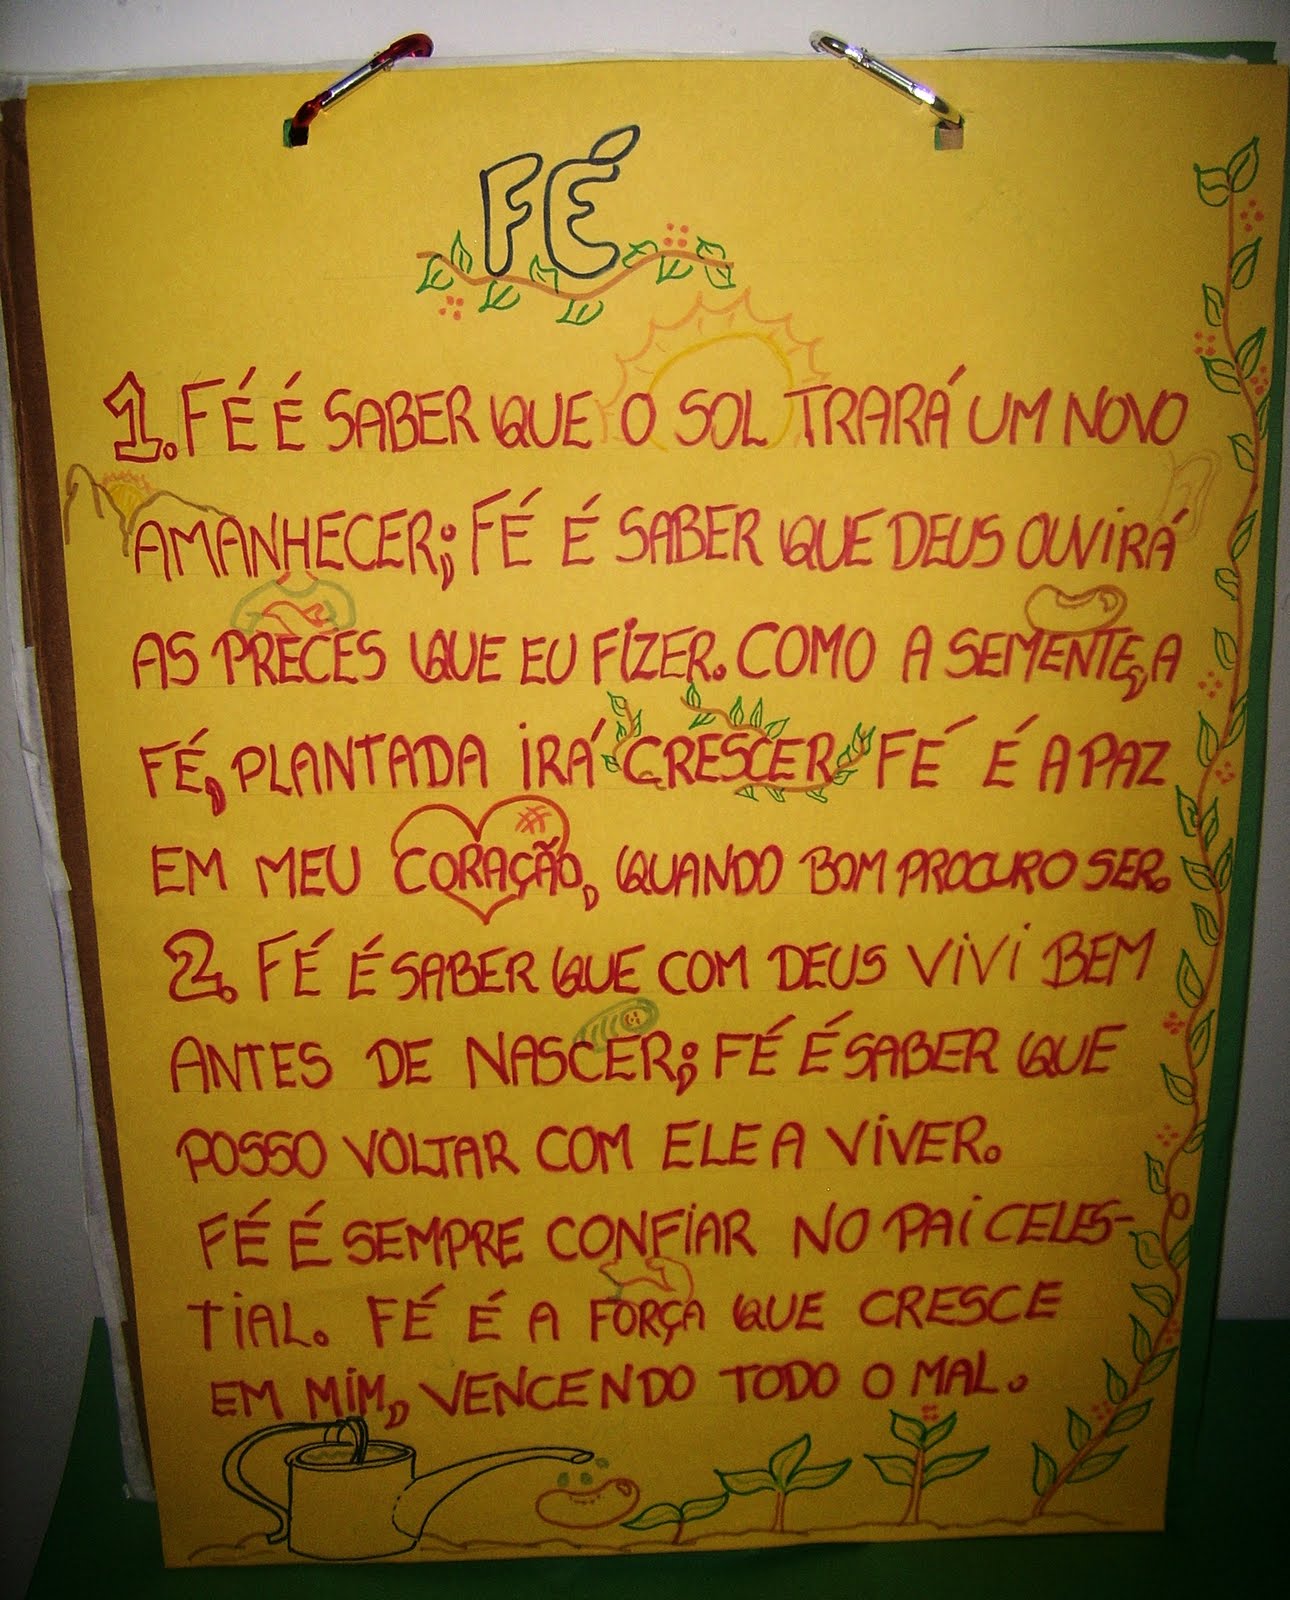 FÉ
1. FÉ É SABER QUE O SOL TRARÁ UM NOVO
AMANHECER; FÉ É SABER QUE DEUS OUVIRÁ
AS PRECES QUE EU FIZER. COMO A SEMENTE, A
FÉ, PLANTADA IRÁ CRESCER. FÉ É A PAZ
EM MEU CORAÇÃO, QUANDO BOM PROCURO SER.
2. FÉ É SABER QUE COM DEUS VIVI BEM
ANTES DE NASCER; FÉ É SABER QUE
POSSO VOLTAR COM ELE A VIVER.
FÉ É SEMPRE CONFIAR NO PAI CELES-
TIAL. FÉ É A FORÇA QUE CRESCE
EM MIM, VENCENDO TODO O MAL.